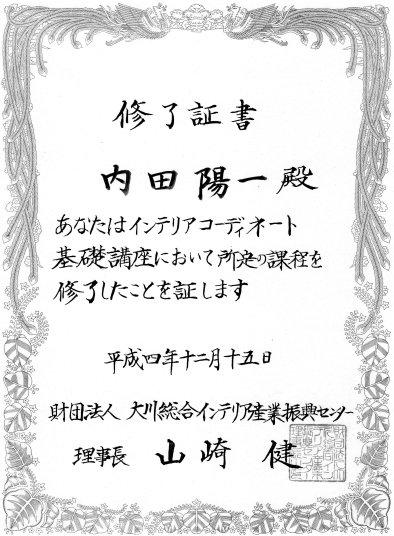 修了証書
内田陽一殿
あなたはインテリアコーディネート
基礎講座において所定の課程を
修了したことを証します
平成四年十二月十五日
財団法人 大川総合インテリア産業振興センター
理事長 山崎 健